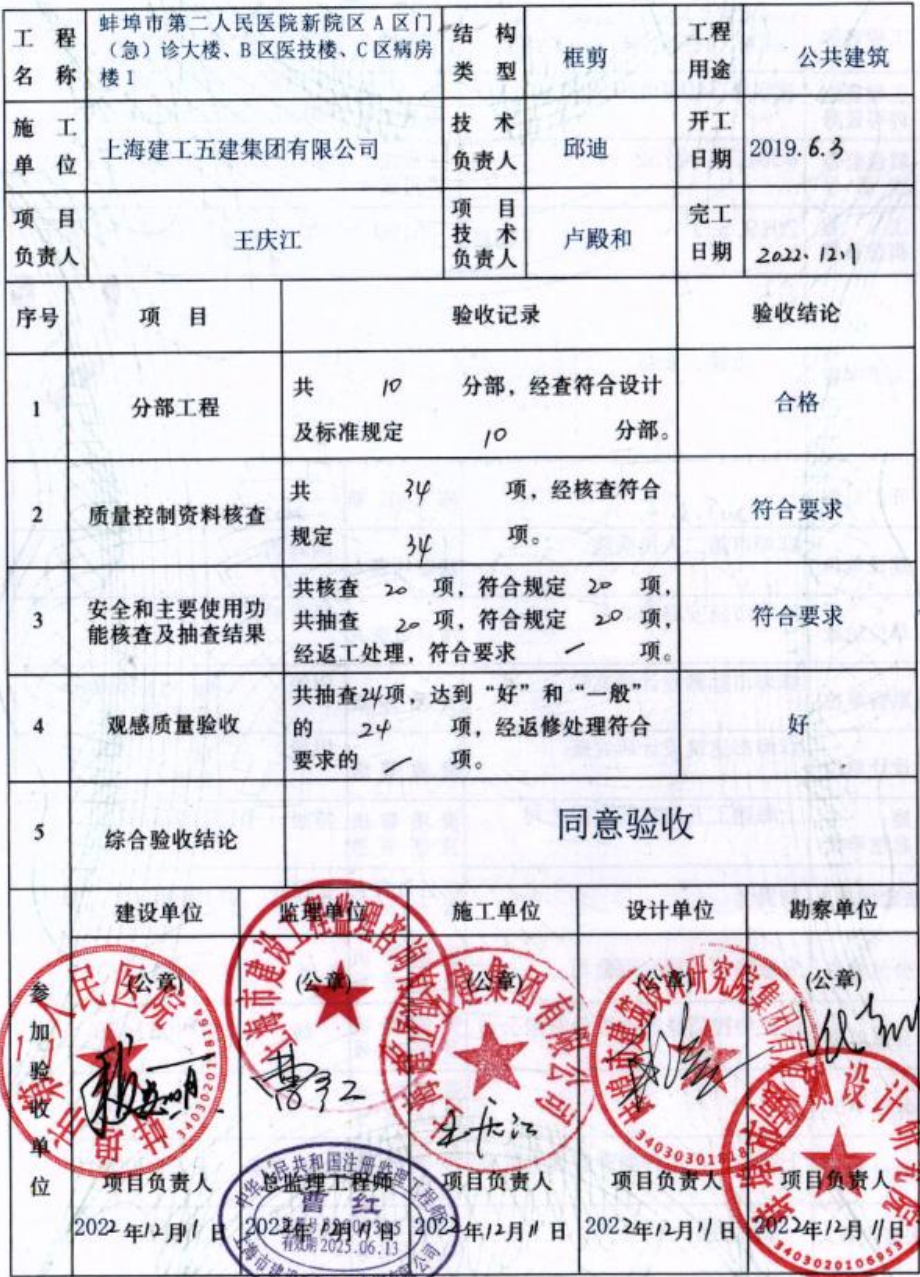 工程名称 蚌埠市第二人民医院新院区 A 区门
（急）诊大楼、B 区医技楼、C 区病房
楼 1
结构类型 框剪 工程用途 公共建筑
施工单位 上海建工五建集团有限公司 技术负责人 邱迪 开工日期 2019.6.3
项目负责人 王庆江 项目技术负责人 卢殿和 完工日期 2022.12.
序号 项目 验收记录 验收结论
1 分部工程 共 10 分部，经查符合设计
及标准规定 10 分部。
合格
2 质量控制资料核查 共 34 项，经核查符合
规定 34 项。
符合要求
3 安全和主要使用功
能核查及抽查结果
共核查 20 项，符合规定 20 项，
共抽查 20 项，符合规定 20 项，
经返工处理，符合要求 一 项。
符合要求
4 观感质量验收 共抽查24项，达到“好”和“一般”
的 24 项，经返修处理符合
要求的 一 项。
好
5 综合验收结论 同意验收
参加验收单位
建设单位 监理单位 施工单位 设计单位 勘察单位
(公章) (公章) (公章) (公章) (公章)
曹红 王庆江
项目负责人 总监理工程师 项目负责人 项目负责人 项目负责人
2022年12月11日 2022年12月11日 2022年12月11日 2022年12月11日 2022年12月11日
中华人民共和国注册监理工程师
曹红
有效期 2025.06.13
3403020106953